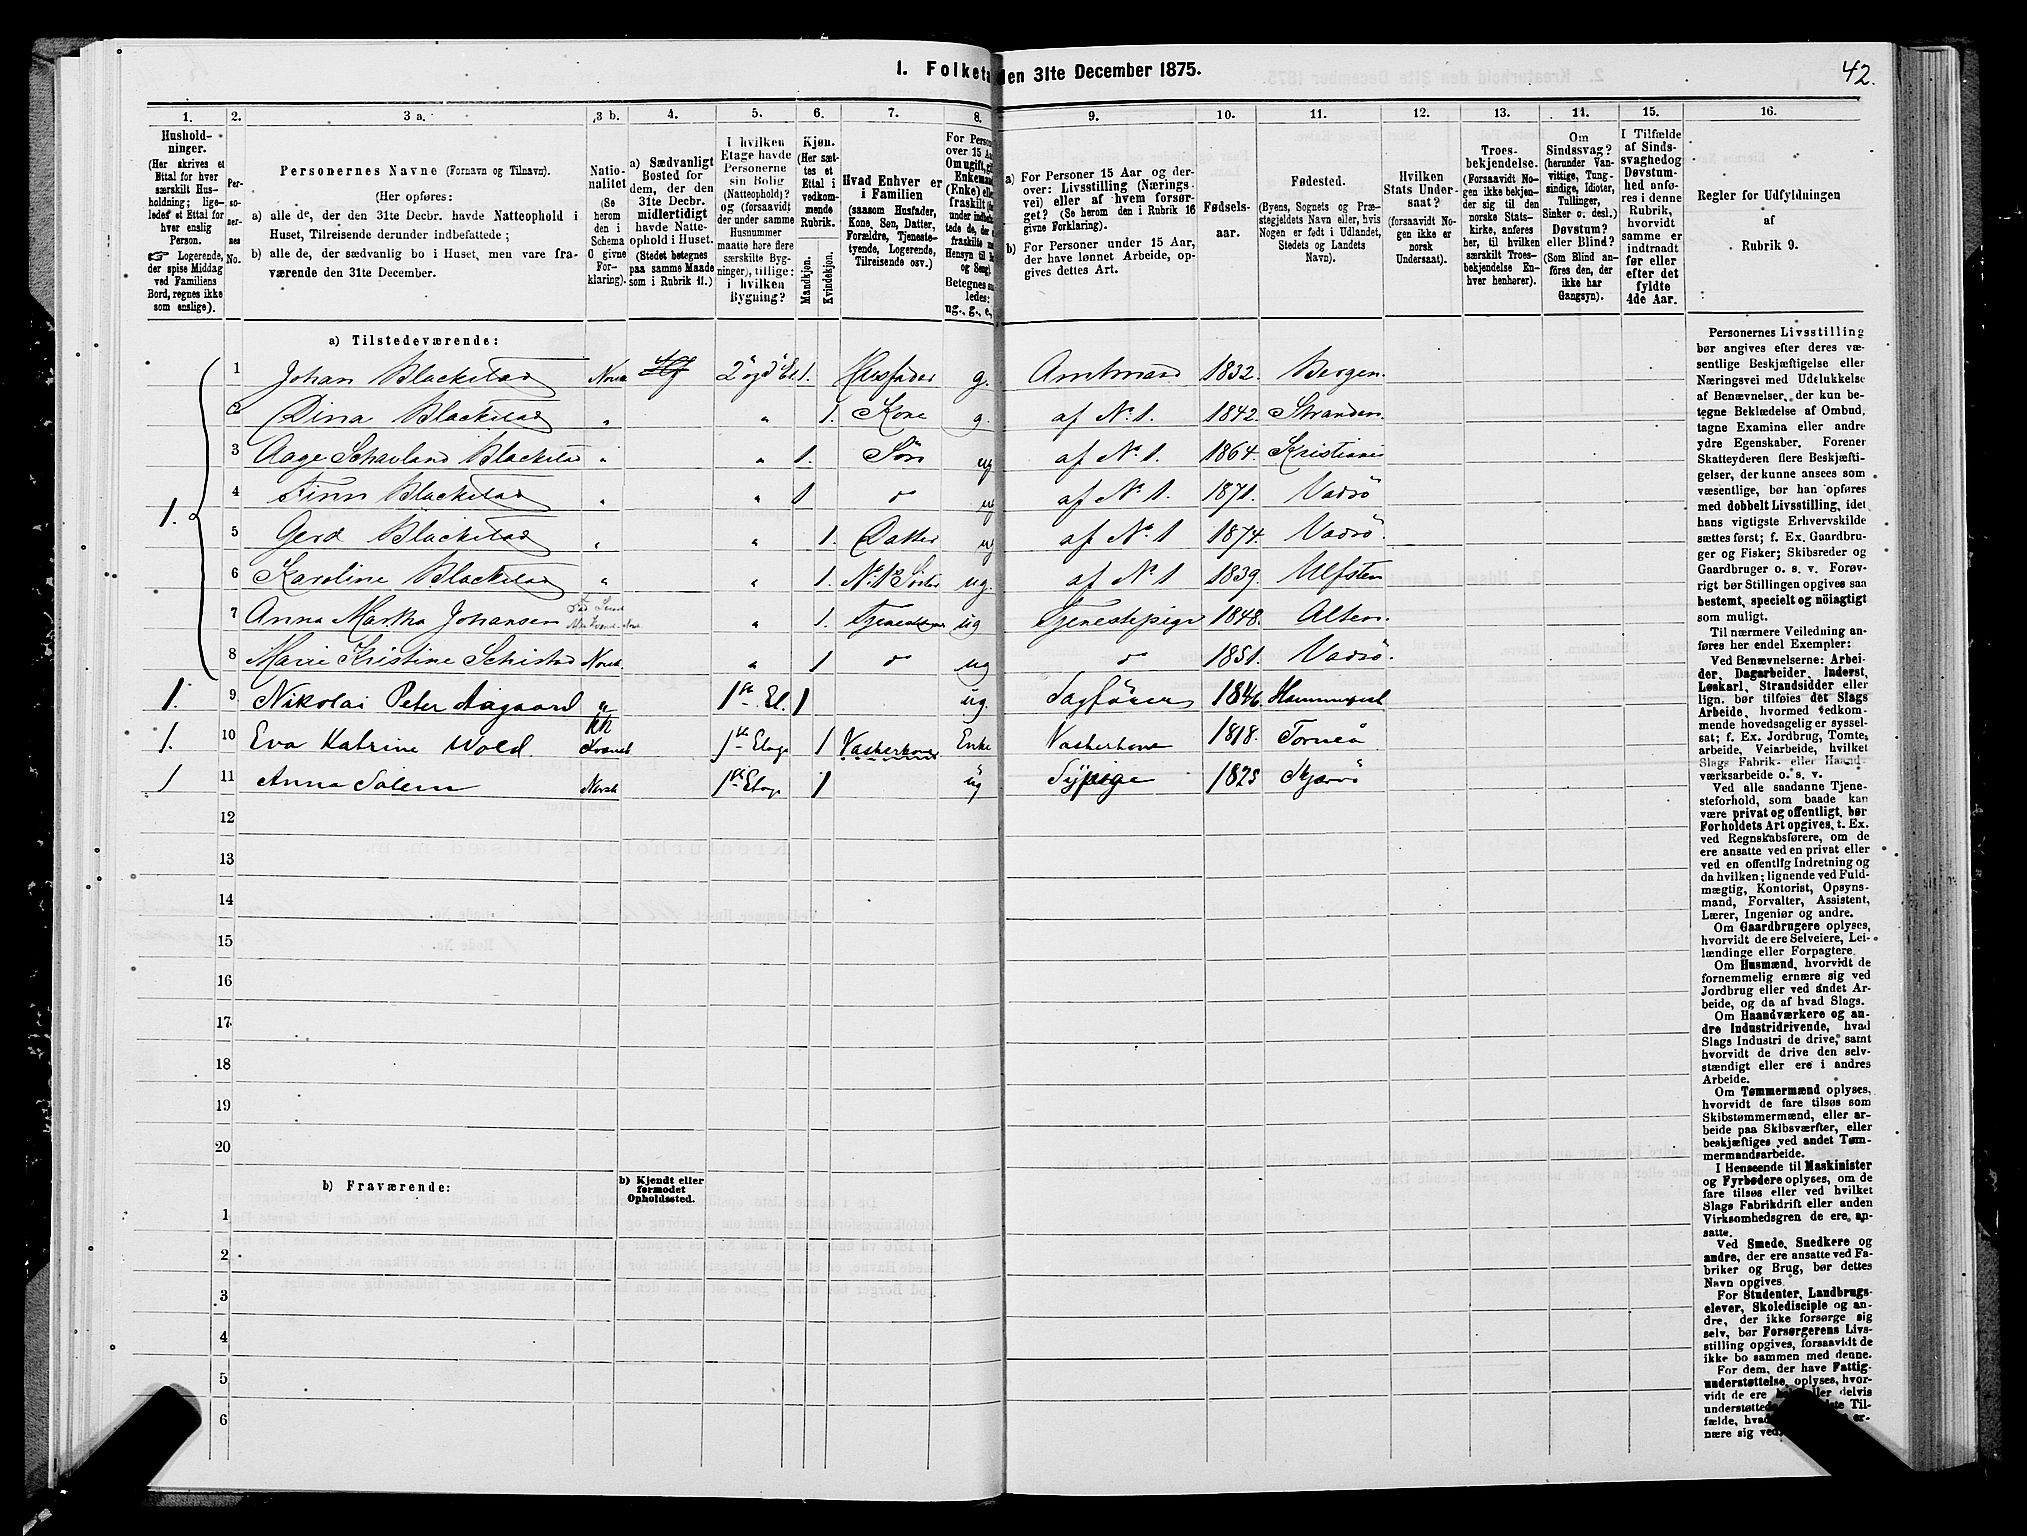 1. Folketæ
den 31te December 1875.
42.
1. 2. 3 a. 3 b. 4. 5. 6. 7. 8. 9. 10. 11. 12. 13. 14. 15. 16.
Hushold-
ninger.
(Her skrives et
Ettal for hver
særskilt Hus-
holdning; lige-
ledes et Ettal for
hver enslig
Person.
☞ Logerende,
der spise Middag
ved Familiens
Bord, regnes ikke
som enslige).
Per-
so-
ner-
nes
No.
Personernes Navne (Fornavn og Tilnavn).
(Her opføres:
a) alle de, der den 31te Decbr. havde Natteophold i
Huset, Tilreisende derunder indbefattede;
b) alle de, der sædvanlig bo i Huset, men vare fra-
værende den 31te December.
Natio-
nalitet
(Se
herom
den i
Schema
O givne
For-
klaring).
a) Sædvanligt
Bosted for
dem, der den
31te Decbr.
midlertidigt
havde Natte-
ophold i Huset.
(Stedet betegnes
paa samme Maade
som i Rubrik 11.)
I hvilken
Etage havde
Personerne
sin Bolig
(Natteophold)?
og (forsaavidt
der under samme
Husnummer
maatte høre flere
særskilte Byg-
ninger), tillige:
i hvilken
Bygning?
Kjøn.
(Her sæt-
tes et
Ettal i
vedkom-
mende
Rubrik.
Mandkjøn.
Kvindekjøn.
Hvad Enhver er
i Familien
(saasom Husfader,
Kone, Søn, Datter,
Forældre, Tjeneste-
tyende, Logerende,
Tilreisende osv.)
For Person
over 15 Aa
Om ugift, gif
Enkeman
(Enke) elle
fraskilt
under indbe
tede de, der
fraskilte
Hensyn til
og Seng).
Betegnes saa
ledes:
ug., g., e.,
a) For Personer 15 Aar og der-
over: Livsstilling (Nærings-
vei) eller af hvem forsør-
get? (Se herom den i Rubrik 16
givne Forklaring).
b) For Personer under 15 Aar,
der have lønnet Arbeide, op-
gives dettes Art.
Fødsels-
aar.
Fødested.
(Byens, Sognets og Præ-
stegjeldets Navn eller, hvis
Nogen er født i Udlandet,
Stedets og Landets
Navn).
Hvilken
Stats Under-
saat?
(forsaavidt No-
gen ikke er
norsk
Undersaat).
Troes-
bekjendelse.
(Forsaavidt No-
gen ikke bekjen-
der sig til den
norske Stats-
kirke, anføres
her, til hvilken
særskilt Troes-
bekjendelse En-
hver henhører).
Om
Sindssvag?
(herunder Van-
vittige, Tung-
sindige, Idioter,
Tullinger,
Sinker o. desl.)
Døvstum?
eller Blind?
(Som Blind an-
føres den, der
ikke har
Gangsyn).
I Tilfælde
af Sinds-
svaghedog
Døvstum-
hed anfø-
res i denne
Rubrik,
hvorvidt
samme er
indtraadt
før eller
efter det
fyldte
4de Aar.
Regler for Udfyldningen
af
Rubrik 9.
a) Tilstedeværende:
1 Johan Blackstad Norsk 2 og 1. Husfader g. Amtmand 1832. Bergen.
2 Dina Blackstad " " 1. Kone g. af No 1. 1842. Stranden
3 Aage Schavland Blackstad " " 1. Søn ug af No 1. 1864. Kristiania
1. 4 Finn Blackstad " " 1 do ug af No 1. 1871. Vadsö
5 Gerd Blackstad " " 1. Datter ug af No 1 1874. Vadsö.
6 Karoline Blackstad " " 1. No 1s Søster ug. af No 1 1839. Ulfsten
7 Anna Martha Johansen " 1. Tjenestetyende ug Tjenestepige 1848. Alten.
8 Marie Kristine Schistad Norsk " 1 do ug do 1851. Vadsö.
1. 9 Nikolai Peter Aagaard " 1ste Et. 1 ug. Sagfører 1846. Hammerfest
1. 10 Eva Katrine Wold KK Kvænsk 1ste Etage 1 Vaskerkone Enke Vaskerkone 1818. Torneå
1 11 Anna Salem Norsk 1ste Etage 1 ug Sypige 1825 Skjervö
12
13
14
15
16
17
18
19
20
b) Fraværende:
b) Kjendt eller
formodet
Opholdssted.
1
2
3
4
5
6
Personernes Livsstilling
bør angives efter deres væ-
sentlige Beskjæftigelse eller
Næringsvei med Udelukkelse
af Benævnelser, der kun be-
tegne Beklædelse af Ombud,
tagne Examina eller andre
ydre Egenskaber. Forener
Skatteyderen flere Beskjæfti-
gelser, der kunne ansees som
væsentlige, bør han opføres
med dobbelt Livsstilling, idet
hans vigtigste Erhvervskilde
sættes først; f. Ex. Gaardbru-
ger og Fisker; Skibsreder og
Gaardbruger o. s. v. Forøv-
rigt bør Stillingen opgives saa
bestemt, specielt og nöiagtigt
som muligt.
Til nærmere Veiledning an-
føres her endel Exempler:
Ved Benævnelserne: Arbei-
der, Dagarbeider, Inderst,
Løskarl, Strandsidder eller
lign. bør tilføies det Slags
Arbeide, hvormed vedkom-
mende hovedsagelig er syssel-
sat; f. Ex. Jordbrug, Tomte-
arbeide, Veiarbeide, hvilket
Slags Fabrik- eller Haand-
værksarbeide o. s. v.
Ved alle saadanne Tjene-
steforhold, som baade kan
være privat og offentligt, bør
Forholdets Art opgives, t. Ex.
ved Regnskabsførere, om de
ere ansatte ved en privat eller
ved en offentlig Indretning og
da hvilken; lignende ved Fuld-
mægtig, Kontorist, Opsyns-
mand, Forvalter, Assistent,
Lærer, Ingeniør og andre.
Om Gaardbrugere oplyses,
hvorvidt de ere Selveiere, Lei-
lændinge eller Forpagtere.
Om Husmænd, hvorvidt de
fornemmelig ernære sig ved
Jordbrug eller ved andet Ar-
beide, og da af hvad Slags.
Om Haandværkere og an-
dre Industridrivende, hvad
Slags Industri de drive, samt
hvorvidt de drive den selv-
stændigt eller ere i andres
Arbeide.
Om Tømmermænd oplyses,
hvorvidt de fare tilsøs som
Skibstømmermænd, eller ar-
beide paa Skibsværfter, eller
beskjæftiges ved andet Tøm-
mermandsarbeide.
I Henseende til Maskinister
og Fyrbødere oplyses, om de
fare tilsøs eller ved hvilket
Slags Fabrikdrift eller anden
Virksomhedsgren de ere an-
satte.
Ved Smede, Snedkere og
andre, der ere ansatte ved Fa-
briker og Brug, bør dettes
Navn opgives.
For Studenter, Landbrugs-
elever, Skoledisciple og an-
dre, der ikke forsørge sig
selv, bør Forsørgerens Livs-
stilling opgives, forsaavidt de
ikke bo sammen med denne.
For dem, der have Fattig-
understøttelse, oplyses, hvor-
vidt de ere eller delvis
understøttede Til-
fælde, hvad er-
nære sig ved.